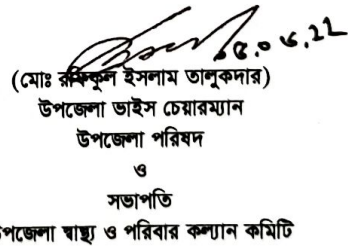 ০৫.০৬.22
(মোঃ রফিকুল ইসলাম তালুকদার)
উপজেলা ভাইস চেয়ারম্যান
উপজেলা পরিষদ
ও
সভাপতি
উপজেলা স্বাস্থ্য ও পরিবার কল্যান কমিটি